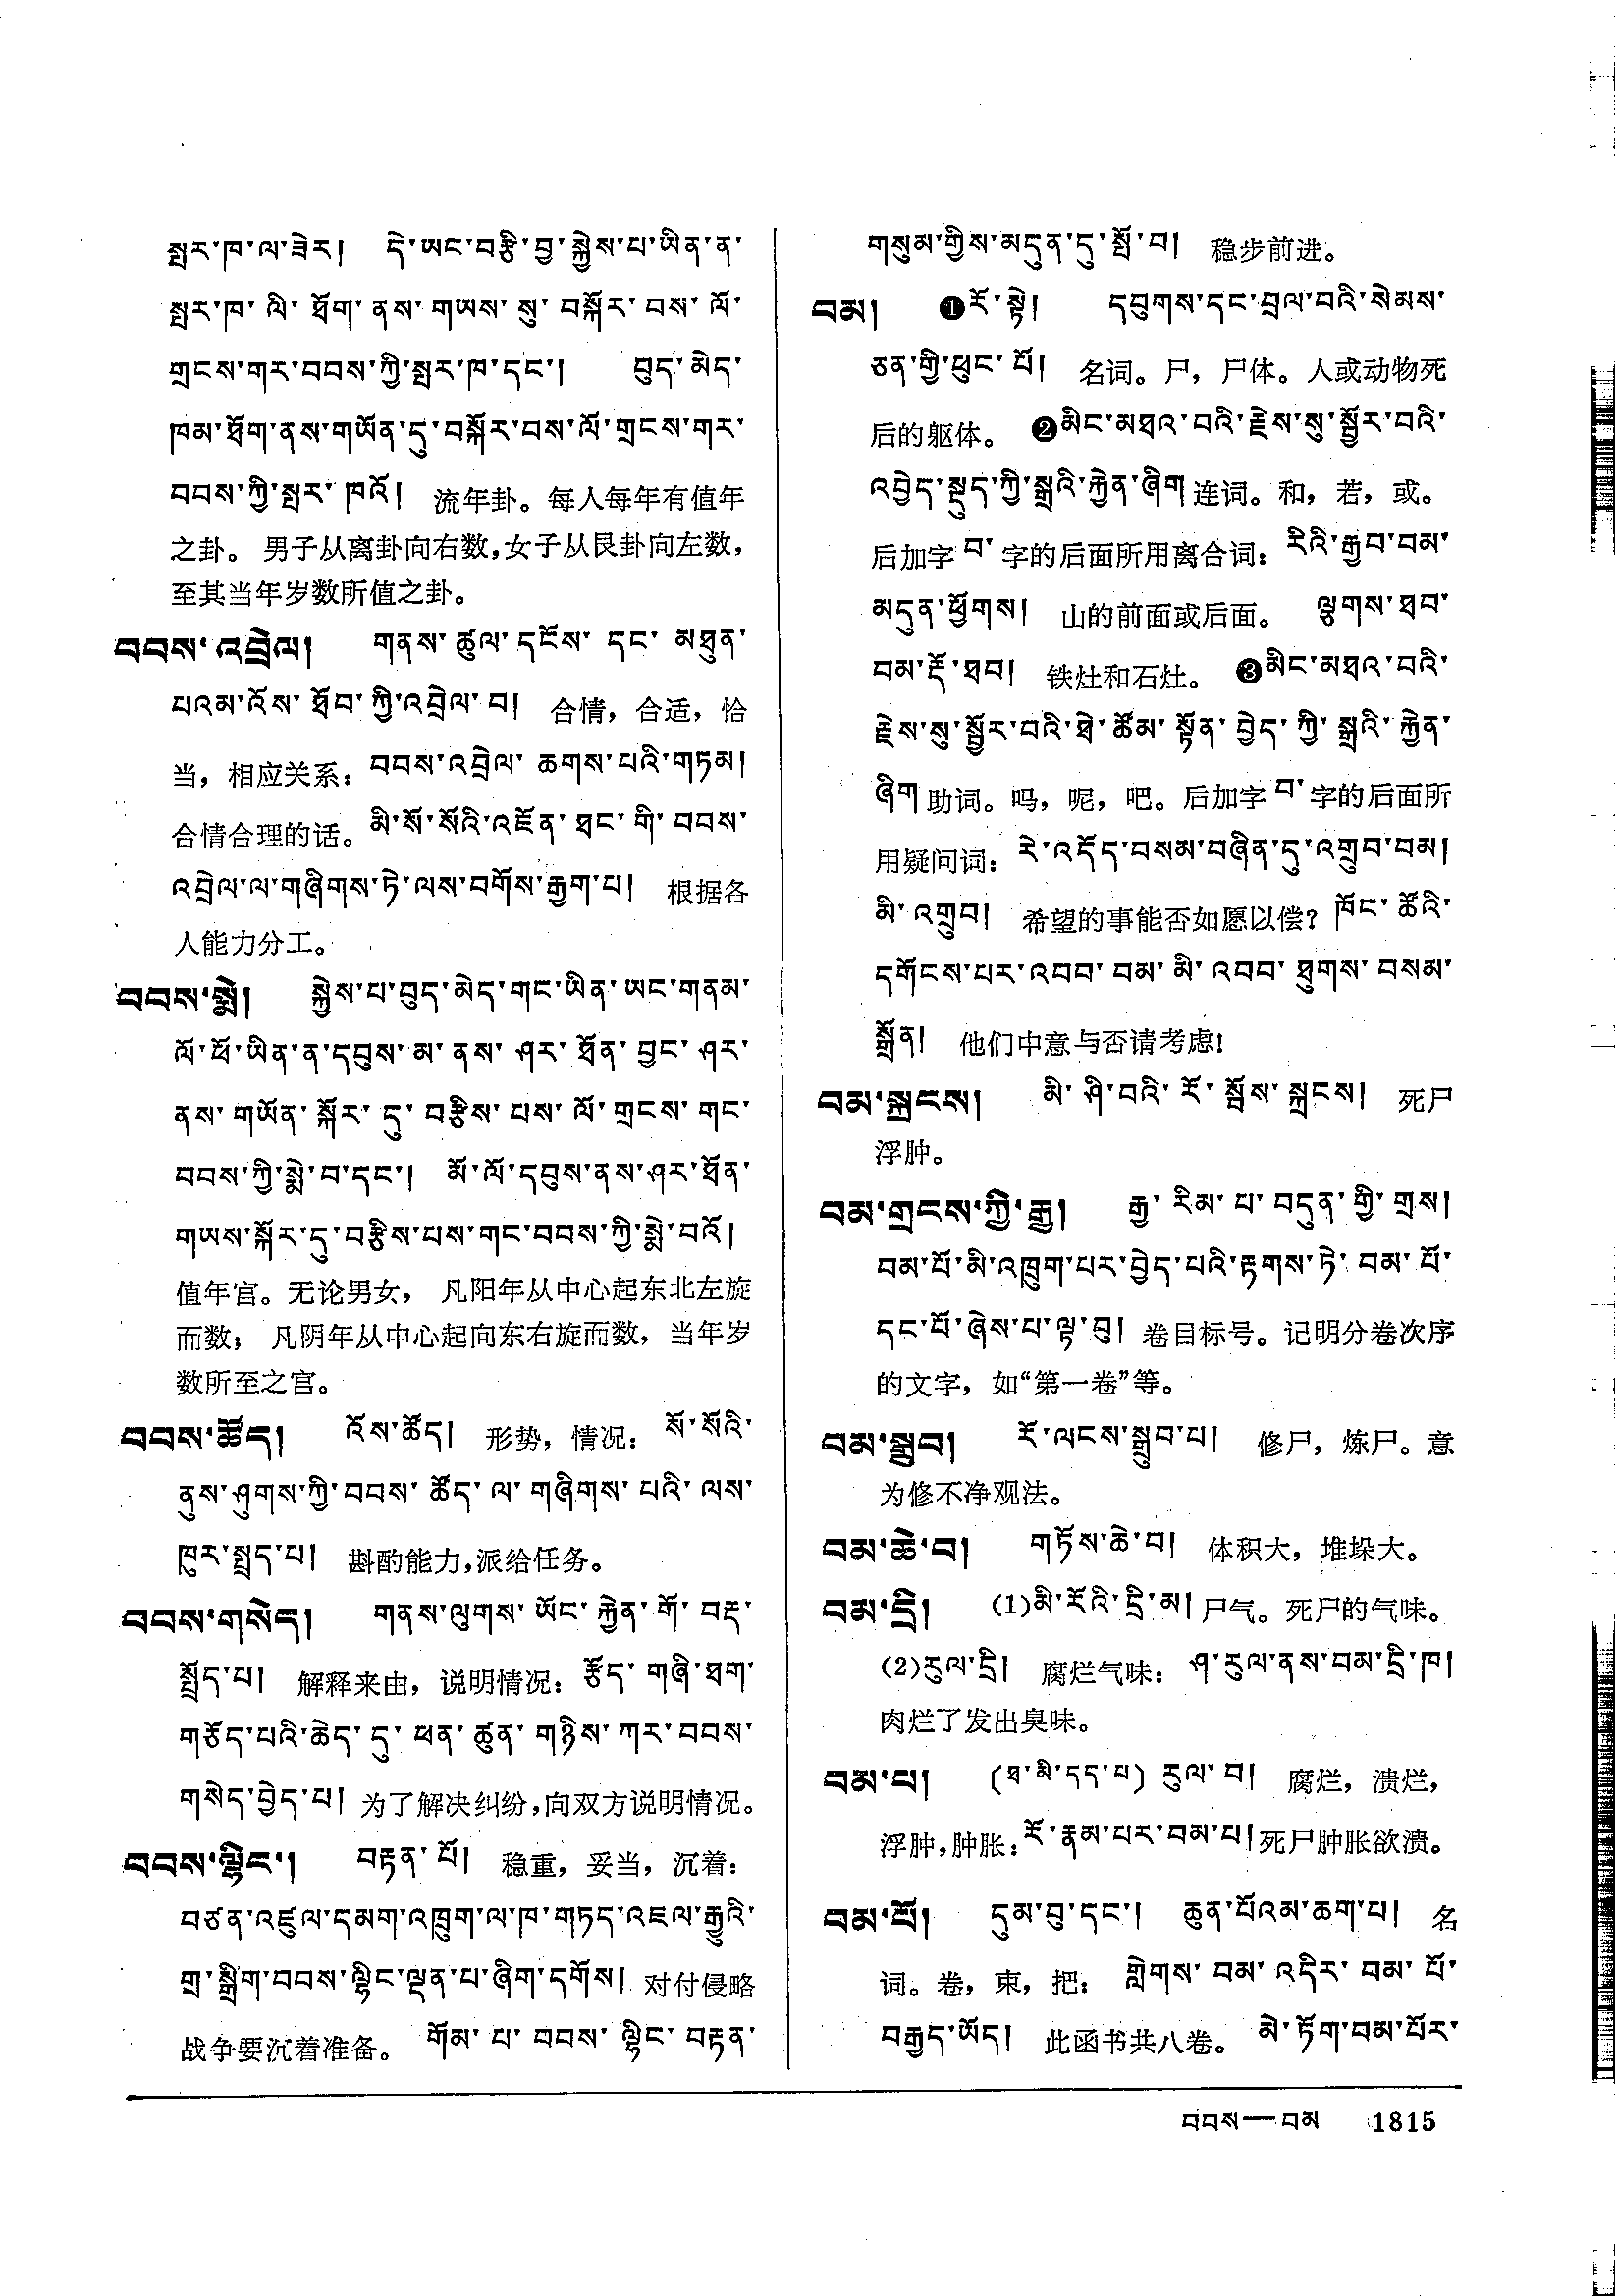 སྤར་ཁ་ལ་ཟེར། དེ་ཡང་བརྩི་བྱ་སྐྱེས་པ་ཡིན་ན་
སྤར་ཁ་ ལི་ ཐོག་ ནས་ གཡས་ སུ་ བསྐོར་ བས་ ལོ་
གྲངས་གར་བབས་ཀྱི་སྤར་ཁ་དང་། བུད་མེད་
ཁམ་ཐོག་ནས་གཡོན་དུ་བསྐོར་བས་ལོ་གྲངས་གར་
བབས་ཀྱི་སྤར་ཁའོ། 流年卦。每人每年有值年
之卦。男子从离卦向右数,女子从艮卦向左数,
至其当年岁数所值之卦。
བབས་འབྲེལ། གནས་ ཚུལ་ དངོས་ དང་ མཐུན་
པའམ་འོས་ ཐོབ་ ཀྱི་འབྲེལ་ བ། 合情，合适，恰
当，相应关系：བབས་འབྲེལ་ ཆགས་པའི་གཏམ།
合情合理的话。མི་སོ་སོའི་འཇོན་ཐང་གི་བབས་
འབྲེལ་ལ་གཞིགས་ཏེ་ལས་བགོས་རྒྱག་པ། 根据各
人能力分工。
བབས་སྨེ། སྐྱེས་པ་བུད་མེད་གང་ཡིན་ཡང་གནམ་
ལོ་ཕོ་ཡིན་ན་དབུས་མ་ནས་ཤར་ཐོན་བྱང་ཤར་
ནས་ གཡོན་ སྐོར་ དུ་ བརྩིས་ པས་ ལོ་ གྲངས་ གང་
བབས་ཀྱི་སྨེ་བ་དང་། མོ་ལོ་དབུས་ནས་ཤར་ཐོན་
གཡས་སྐོར་དུ་བརྩིས་པས་གང་བབས་ཀྱི་སྨེ་བའོ།
值年宫。无论男女，凡阳年从中心起东北左旋
而数；凡阴年从中心起向东右旋而数，当年岁
数所至之宫。
བབས་ཚོད། འོས་ཚོད། 形势，情况：སོ་སོའི་
ནུས་ཤུགས་ཀྱི་བབས་ ཚོད་ ལ་ གཞིགས་ པའི་ ལས་
ཁུར་སྤྲད་པ། 斟酌能力,派给任务。
བབས་གསེད། གནས་ལུགས་ ཡོང་ རྐྱེན་ གོ་ བརྡ་
སྤྲོད་པ། 解释来由，说明情况：རྩོད་ གཞི་ཐག་
གཅོད་པའི་ཆེད་ དུ་ ཕན་ ཚུན་ གཉིས་ ཀར་བབས་
གསེད་བྱེད་པ། 为了解决纠纷,向双方说明情况。
བབས་ལྷིང་། བརྟན་ པོ། 稳重，妥当，沉着：
བཙན་འཛུལ་དམག་འཁྲུག་ལ་ཁ་གཏད་འཇལ་རྒྱུའི་
གྲ་སྒྲིག་བབས་ལྷིང་ལྡན་པ་ཞིག་དགོས། 对付侵略
战争要沉着准备。གོམ་ པ་ བབས་ ལྷིང་ བརྟན་
གསུམ་གྱིས་མདུན་དུ་སྤོ་བ། 稳步前进。
བམ། ❶རོ་སྟེ། དབུགས་དང་བྲལ་བའི་སེམས་
ཅན་གྱི་ཕུང་པོ། 名词。尸，尸体。人或动物死
后的躯体。❷མིང་མཐའ་བའི་རྗེས་སུ་སྦྱོར་བའི་
འབྱེད་སྡུད་ཀྱི་སྒྲའི་རྐྱེན་ཞིག 连词。和，若，或。
后加字 བ་ 字的后面所用离合词：རིའི་རྒྱབ་བམ་
མདུན་ཕྱོགས། 山的前面或后面。ལྕགས་ཐབ་
བམ་རྡོ་ཐབ། 铁灶和石灶。❸མིང་མཐའ་བའི་
རྗེས་སུ་སྦྱོར་བའི་ཐེ་ཚོམ་སྟོན་བྱེད་ཀྱི་སྒྲའི་རྐྱེན་
ཞིག 助词。吗，呢，吧。后加字 བ་ 字的后面所
用疑问词：རེ་འདོད་བསམ་བཞིན་དུ་འགྲུབ་བམ།
མི་འགྲུབ། 希望的事能否如愿以偿? ཁོང་ཚོའི་
དགོངས་པར་འབབ་ བམ་ མི་ འབབ་ ཐུགས་ བསམ་
སྒྲོན། 他们中意与否请考虑!
བམ་སྐྲངས། མི་ ཤི་བའི་ རོ་ སྦོས་ སྐྲངས། 死尸
浮肿。
བམ་གྲངས་ཀྱི་རྒྱ། རྒྱ་ རིམ་ པ་ བདུན་ གྱི་ གྲས།
བམ་པོ་མི་འཁྲུག་པར་བྱེད་པའི་རྟགས་ཏེ་ བམ་ པོ་
དང་པོ་ཞེས་པ་ལྟ་བུ། 卷目标号。记明分卷次序
的文字，如“第一卷”等。
བམ་སྒྲུབ། རོ་ལངས་སྒྲུབ་པ། 修尸，炼尸。意
为修不净观法。
བམ་ཆེ་བ། གཏོས་ཆེ་བ། 体积大，堆垛大。
བམ་དྲི། (1)མི་རོའི་དྲི་མ། 尸气。死尸的气味。
(2)རུལ་དྲི། 腐烂气味：ཤ་རུལ་ནས་བམ་དྲི་ཁ།
肉烂了发出臭味。
བམ་པ། (ཐ་མི་དད་པ) རུལ་བ། 腐烂，溃烂，
浮肿,肿胀：རོ་རྣམ་པར་བམ་པ། 死尸肿胀欲溃。
བམ་པོ། དུམ་བུ་དང་། ཆུན་པོའམ་ཆག་པ། 名
词。卷，束，把：གླེགས་ བམ་ འདིར་ བམ་ པོ་
བརྒྱད་ཡོད། 此函书共八卷。མེ་ཏོག་བམ་པོར་
བབས—བམ 1815